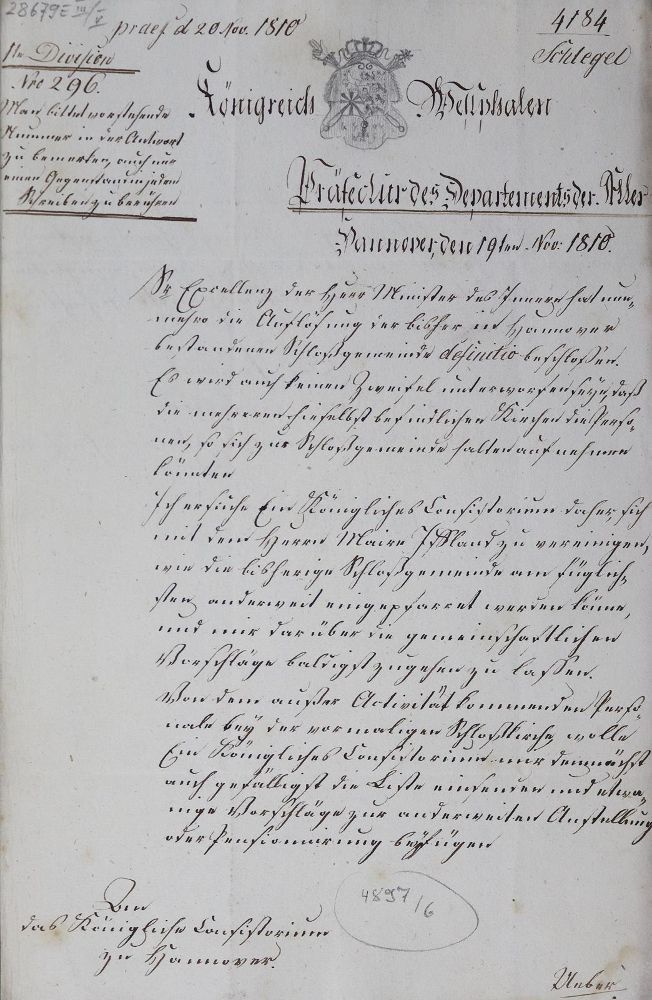 28679E III/V
praes d 20 Nov. 1810
4184
Schlegel
1te Division
Nro 296.
Man bittet vorstehende
Nummer in der Antwort
zu bemerken, auch nur
einen Gegenstand in jedem
Schreiben zu berühren
Königreich Westphalen
Präfectur des Departements der Aller
Hannover, den 19ten Nov: 1810.
Sr Excellenz der Herr Minister des Innern hat nun-
mehro die Auflösung der bisher in Hannover
bestandenen Schloßgemeinde definitio beschlossen.
Es wird auch keinen Zweifel unterworfen seyn, daß
die mehreren hieselbst befindlichen Kirchen die Perso-
nen, so sich zur Schloßgemeinde halten aufnehmen
könnten
Ich ersuche Ein Königliches Consistorium daher, sich
mit dem Herrn Maire Iffland zu vereinigen,
wie die bisherige Schloßgemeinde am füglich-
sten anderweit eingepfarret werden könne,
und mir darüber die gemeinschaftlichen
Vorschläge baldigst zugehen zu lassen.
Von dem außer Activität kommenden Perso-
nale bey der vormaligen Schloßkirche wolle
Ein Königliches Consistorium mir demnächst
auch gefälligst die Liste einsenden und etwa-
nige Vorschläge zur anderweiten Anstellung
oder Pensionirung beyfügen
An
das Königliche Consistorium
zu Hannover.
4897/6
Ueber